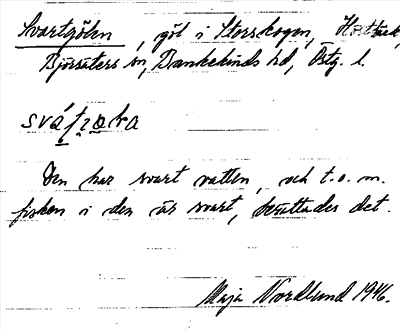 Svartgölen, göl i Storskogen,
Björsäters sn, Bankekinds hd, Östg. l.
Den har svart vatten, och t.o.m.
fisken i den är svart, berättades det.
Maja Nordlund 1946.